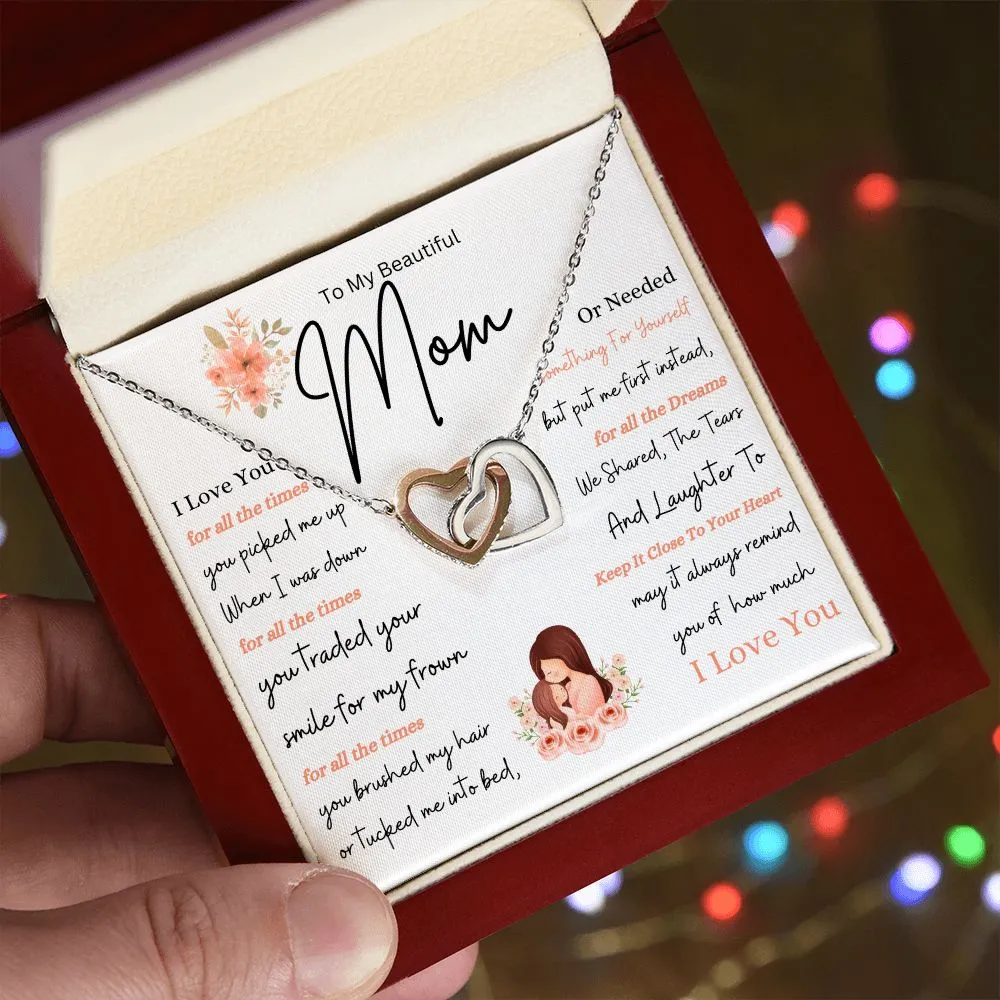 To My Beautiful
Mom
I Love You
for all the times
you picked me up
When I was down
for all the times
you traded your
smile for my frown
for all the times
you brushed my hair
or tucked me into bed,
Or Needed
Something For Yourself
but put me first instead,
for all the Dreams
We Shared, The Tears
And Laughter To
Keep It Close To Your Heart
may it always remind
you of how much
I Love You